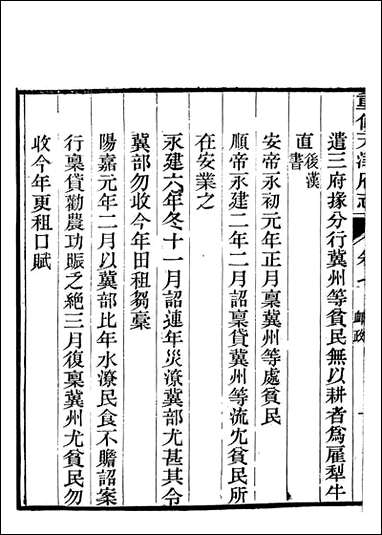 重修天津府志 卷七 卹政 一
遣三府掾分行冀州等貧民無以耕者爲雇犁牛
直後漢書
安帝永初元年正月稟冀州等處貧民
順帝永建二年二月詔稟貸冀州等流宂貧民所
在安業之
永建六年冬十一月詔連年災潦冀部尤甚其令
冀部勿收今年田租芻稾
陽嘉元年二月以冀部比年水潦民食不贍詔案
行稟貸勸農功賑乏絕三月復稟冀州尤貧民勿
收今年更租口賦